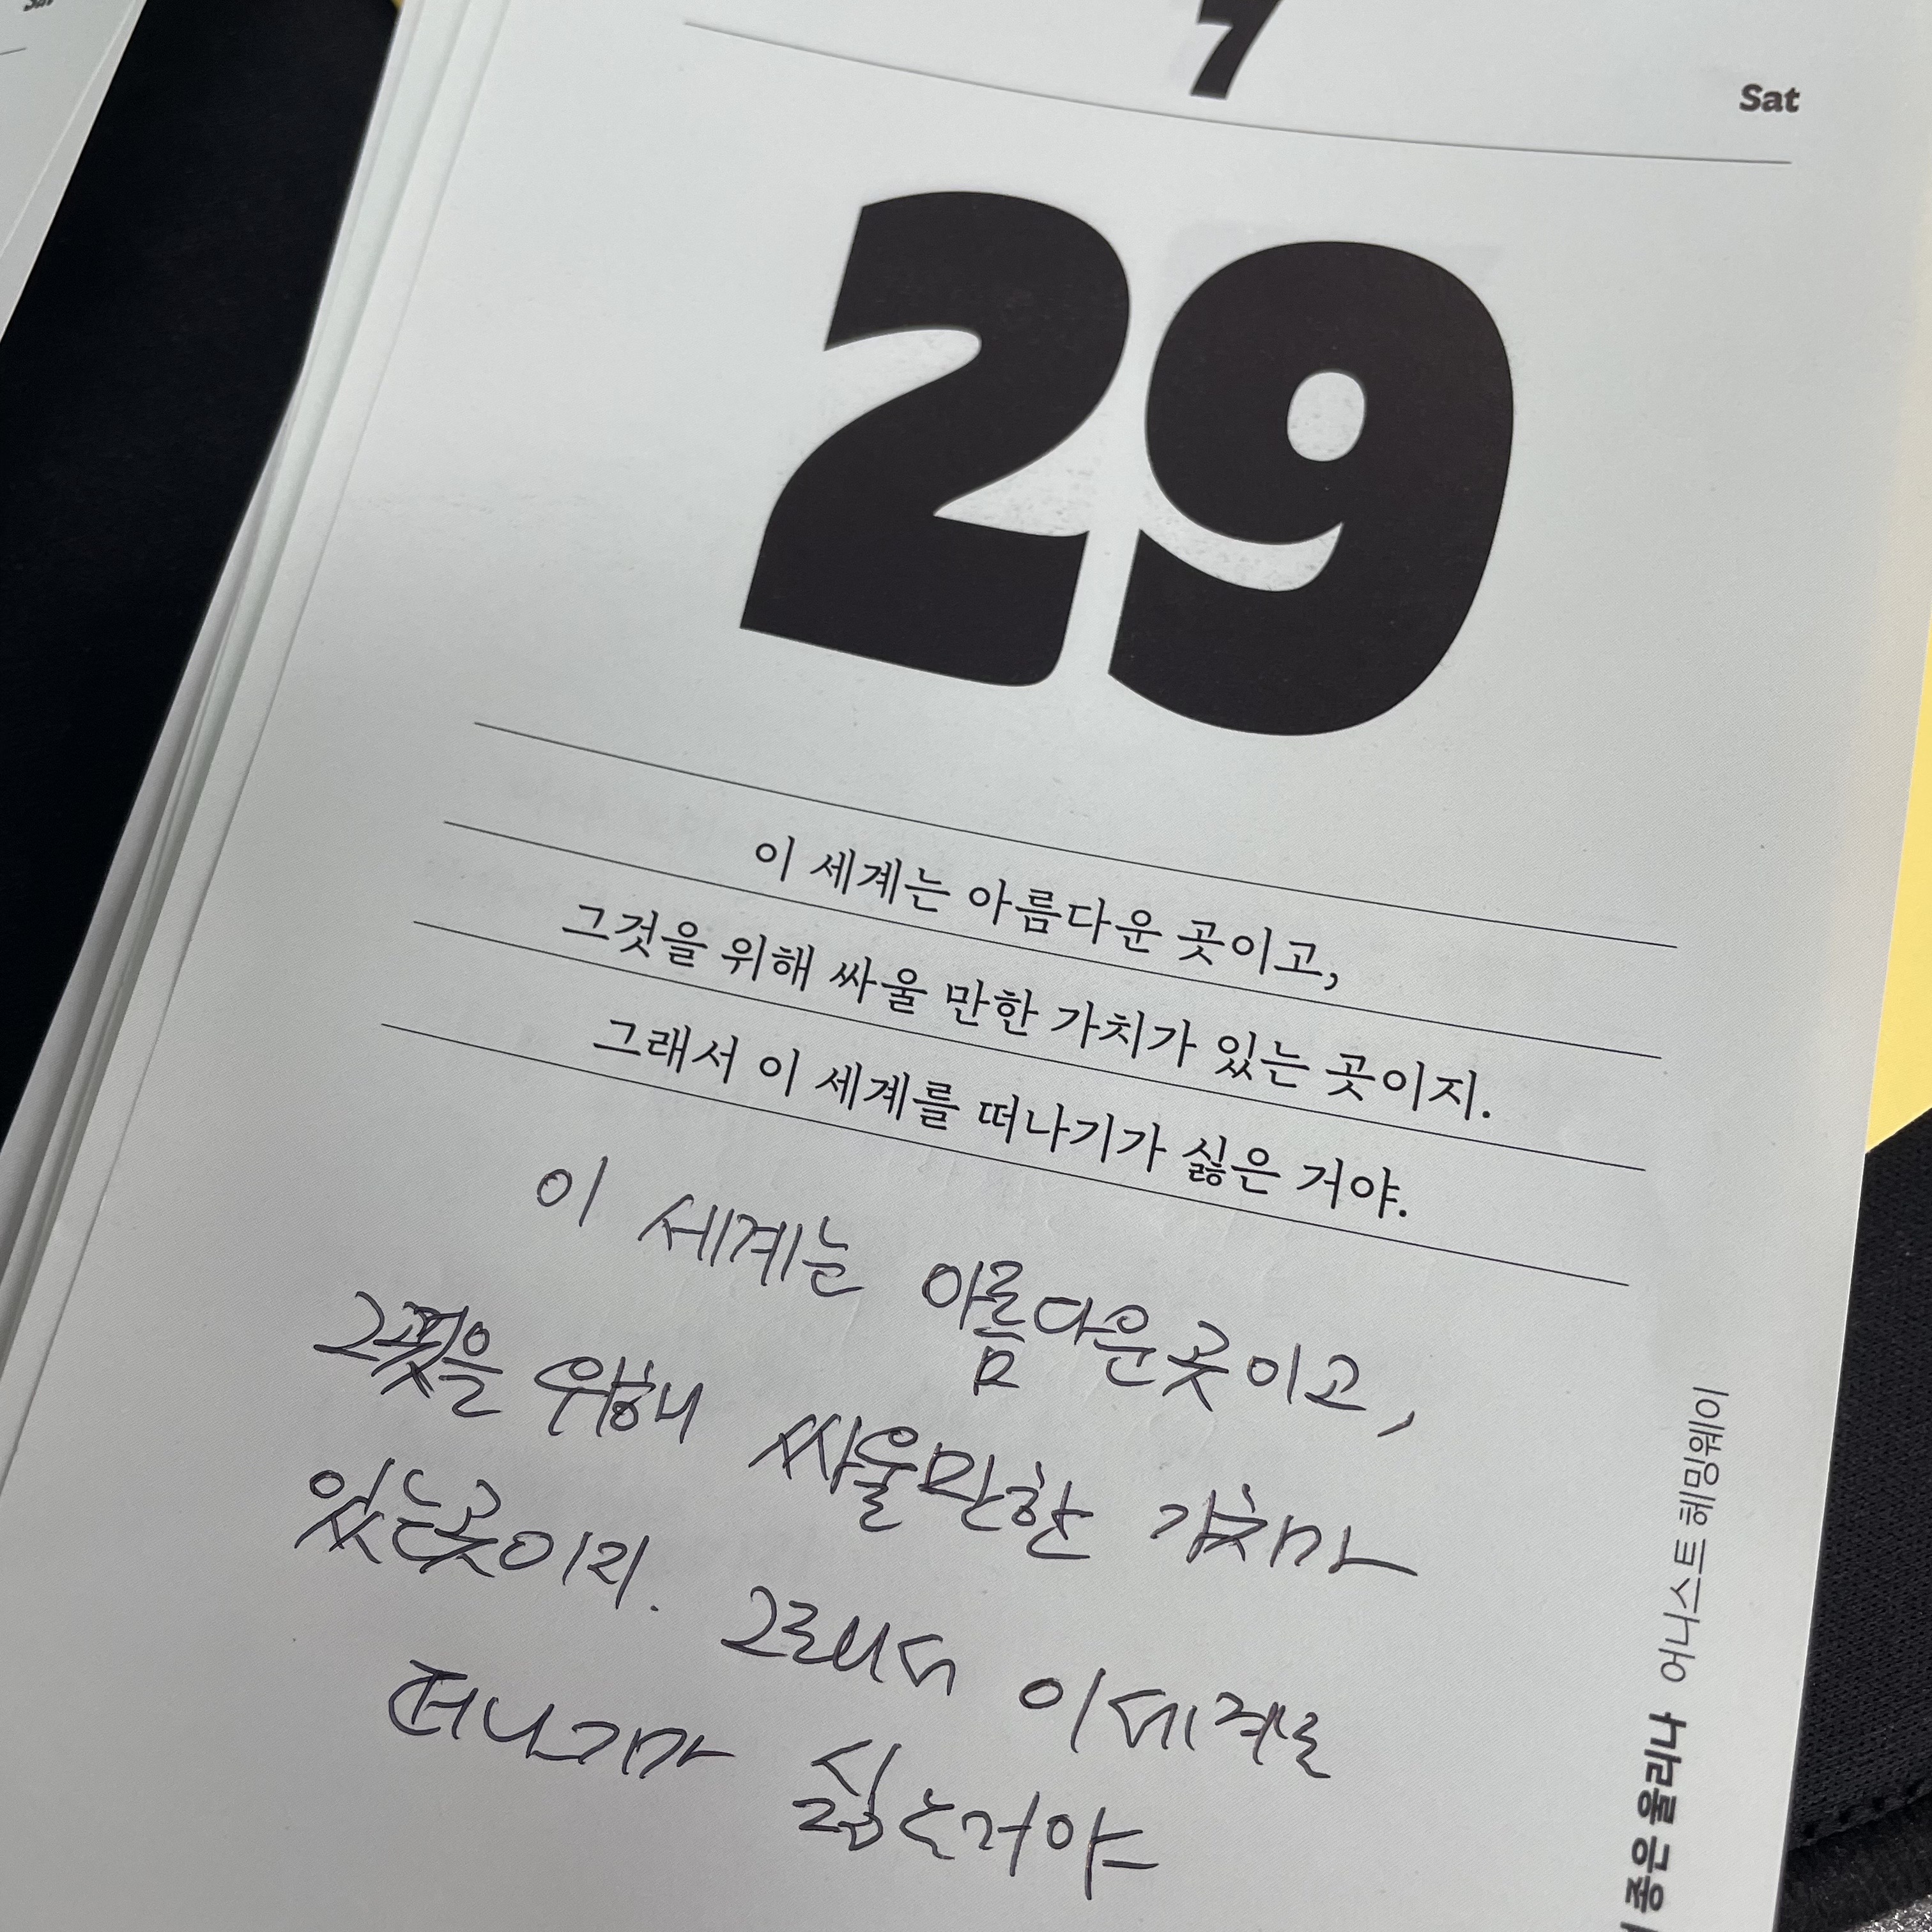 7
Sat
29
이 세계는 아름다운 곳이고,
그것을 위해 싸울 만한 가치가 있는 곳이지.
그래서 이 세계를 떠나기가 싫은 거야.
이 세계는 아름다운 곳이고,
그것을 위해 싸울만한 가치가
있는곳이지. 그래서 이 세계를
떠나기가 싫은거야
좋은 울리나 어니스트 헤밍웨이